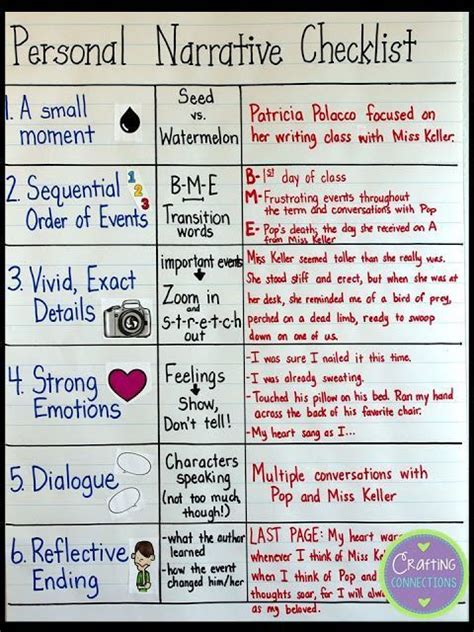 Personal Narrative Checklist
1. A small
moment
Seed
vs.
Watermelon
Patricia Polacco focused on
her writing class with Miss Keller.
2. Sequential
Order of Events
1
2
3
B-M-E
Transition
words
B-1st day of class
M-Frustrating events throughout
the term and conversations with Pop
E- Pop's death; the day she received an
A from Miss Keller
3. Vivid, Exact
Details
important events
Zoom in
and
s-t-r-e-t-c-h
out
Miss Keller seemed taller than she really was.
She stood stiff and erect, but when she was at
her desk, she reminded me of a bird of prey,
perched on a dead limb, ready to swoop
down on one of us.
4. Strong
Emotions
Feelings
Show,
Don't tell!
-I was sure I nailed it this time.
-I was already sweating.
-Touched his pillow on his bed. Ran my hand
across the back of his favorite chair.
-My heart sang as I...
5. Dialogue
Characters
speaking
(not too much
though!)
Multiple conversations with
Pop and Miss Keller
6. Reflective
Ending
-what the author
learned
-how the event
changed him/her
LAST PAGE: My heart
whenever I think of Miss
when I think of Pop and
thoughts soar, for I will
as my beloved.
Crafting
CONNECTIONS